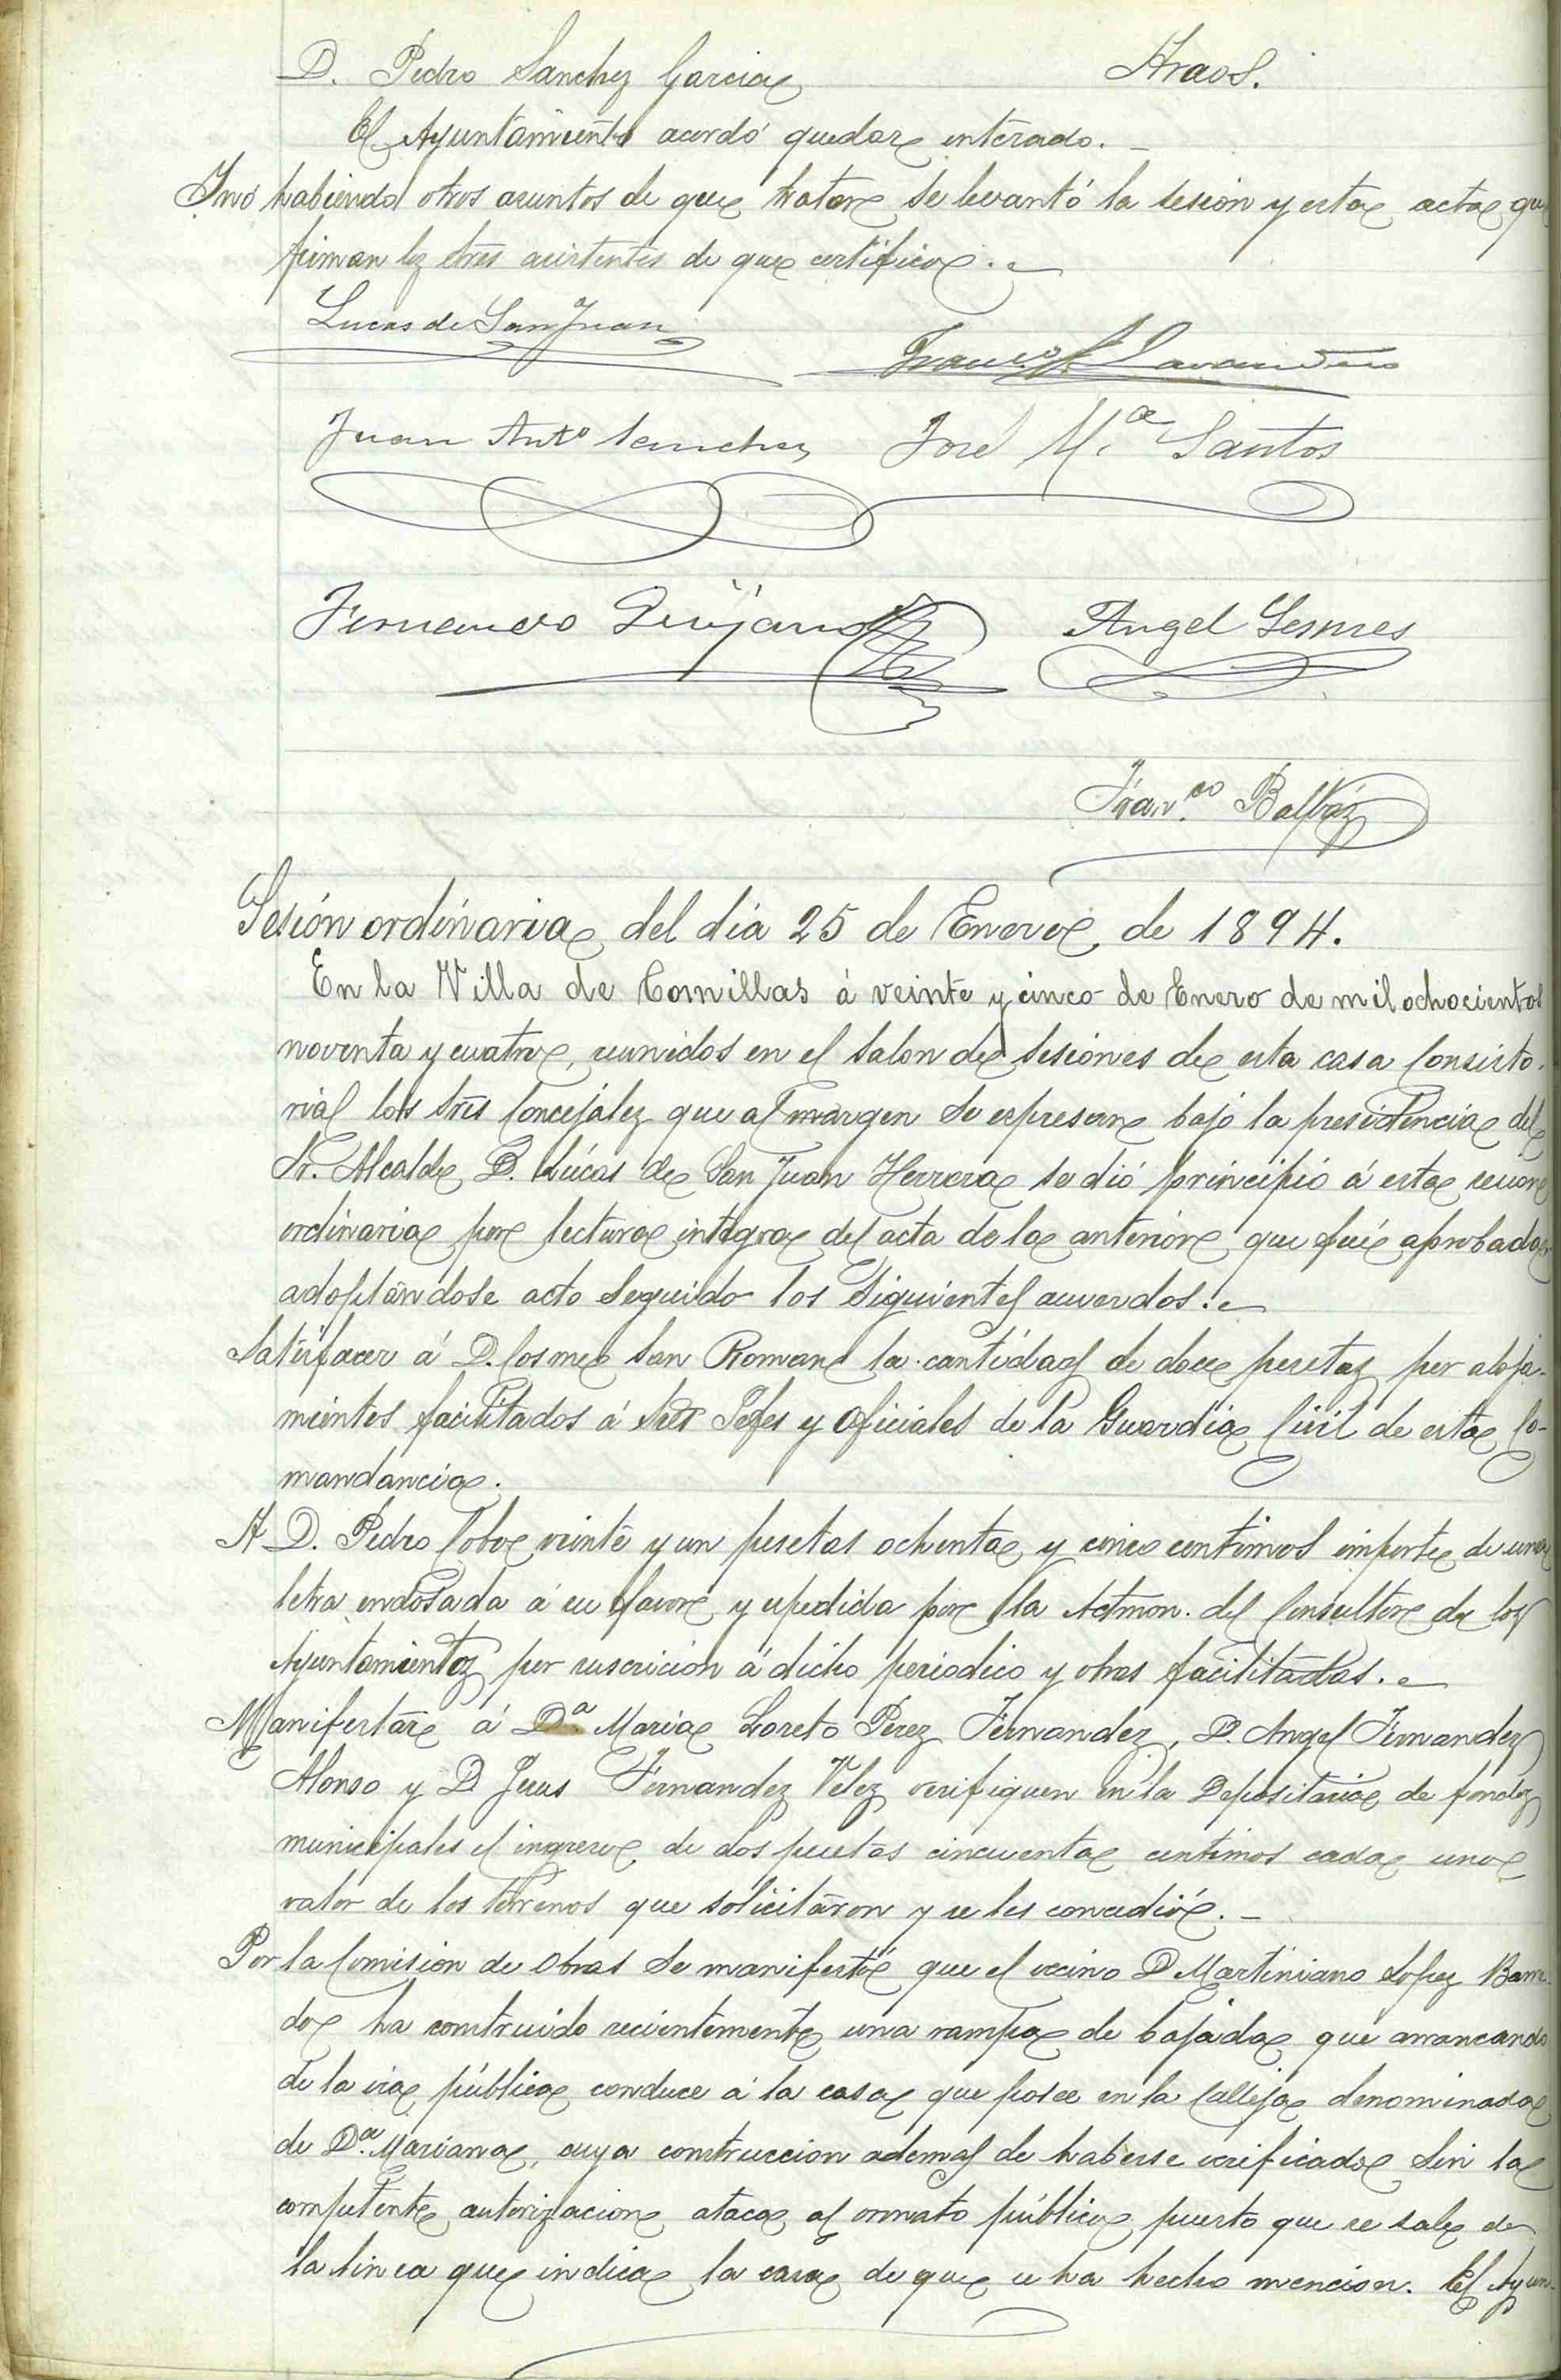 D. Pedro Sanchez Garcia Araos.
El Ayuntamiento acordó quedar enterado.
Y no habiendo otros asuntos de que tratar se levantó la sesion y esta acta que
firman los Sres asistentes de que certifico.
Lucas de San Juan
Franco
Juan Anto Sanchez José Ma Santos
Fernando Quijano Angel Lesmes
Fran.co Balbáz
Sesión ordinaria del dia 25 de Enero de 1894.
En la Villa de Comillas á veinte y cinco de Enero de mil ochocientos
noventa y cuatro, reunidos en el salon de sesiones de esta casa Consisto-
rial los Sres Concejales que al margen se espresan bajo la presidencia del
Sr. Alcalde D. Lúcas de San Juan Herrera se dió principio á esta sesion
ordinaria por lectura integra del acta de la anterior que fué aprobada
adoptándose acto seguido los siguientes acuerdos.
Satisfacer á D. Cosme San Roman la cantidad de doce pesetas por aloja-
mientos facilitados á Sres Jefes y Oficiales de la Guardia Civil de esta Co-
mandancia.
A D. Pedro Cobo veinte y un pesetas ochenta y cinco centimos importe de una
letra endosada á su favor y espedida por la Admon. del Consultor de los
Ayuntamientos por suscricion á dicho periodico y otras facilitadas.
Manifestar á Da. Maria Loreto Perez Fernandez, D. Angel Fernandez
Alonso y D Jesus Fernandez Velez verifiquen en la Depositaria de fondos
municipales el ingreso de dos pesetas cincuenta centimos cada uno
valor de los terrenos que solicitaron y se les concedió.
Por la Comision de Obras se manifestó que el vecino D Martiniano Lopez Barre-
do ha construido recientemente una rampa de bajada que arrancando
de la via pública conduce á la casa que posee en la Calleja denominada
de Da. Mariana, cuya construccion ademas de haberse verificado sin la
competente autorizacion ataca al ornato público puesto que se sale de
la linea que indica la casa de que se ha hecho mencion. El Ayun-